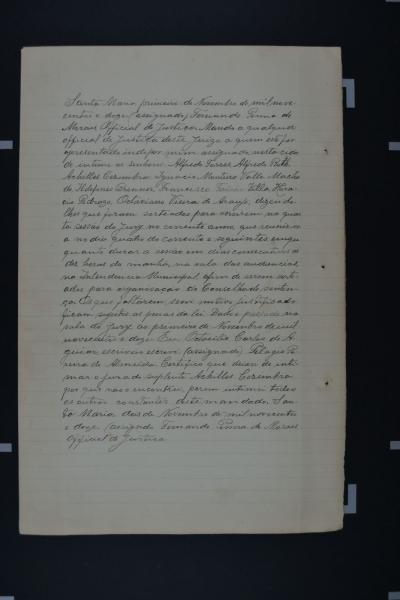 Santa Maria, primeiro de Novembro de mil nove
centos e doze, (assignado) Fernando Penna de
Moraes Official de Justiça. Mando a qualquer
official de Justiça deste Juizo a quem este for
apresentado indo por mim assignado nesta cida
de intime os senhores Alfredo Torres, Alfredo
Achilles Coramba, Ignacio Valle Macha
do Ildefonso Brenner, Francisco Villa, Hora
cio Pedroso, Octaviano Vieira de Araujo, dizendo
lhes que foram sorteados para servirem na quar
ta sessão do Jury no corrente anno, que reunirá
a no dia quatro do corrente e seguintes em
quanto durar a sessão em dias consecutivos, as
dez horas da manhã, na sala das audiencias
na Intendencia Municipal, afim de serem sorte
ados para organisação do Conselho de senten
ça. Os que faltarem, sem motivo justificado
ficam sujeitos as penas da lei. Dado e passado na
sala do Jury, ao primeiro de Novembro de mil
novecentos e doze. Eu, Carlos de A
guiar escrivão escrevi. (assignado) Pelagio Pe
reira de Almeida. Certifico que deixei de inti
mar o jurado supplente Achilles Coramba
por que não o encontrei, porem intimei todos
os outros constantes deste mandado. San
ta Maria dois de Novembro de mil novecentos
e doze. (assignado Fernando Penna de Moraes
Official de Justiça.